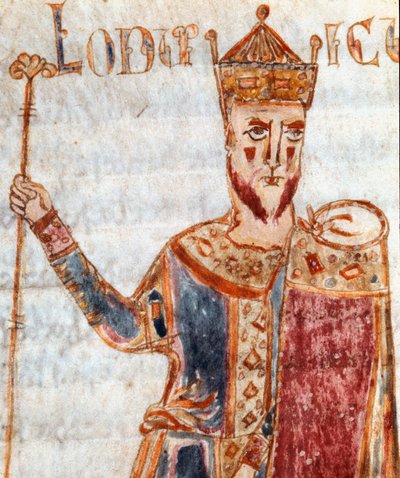 LODUU ICU